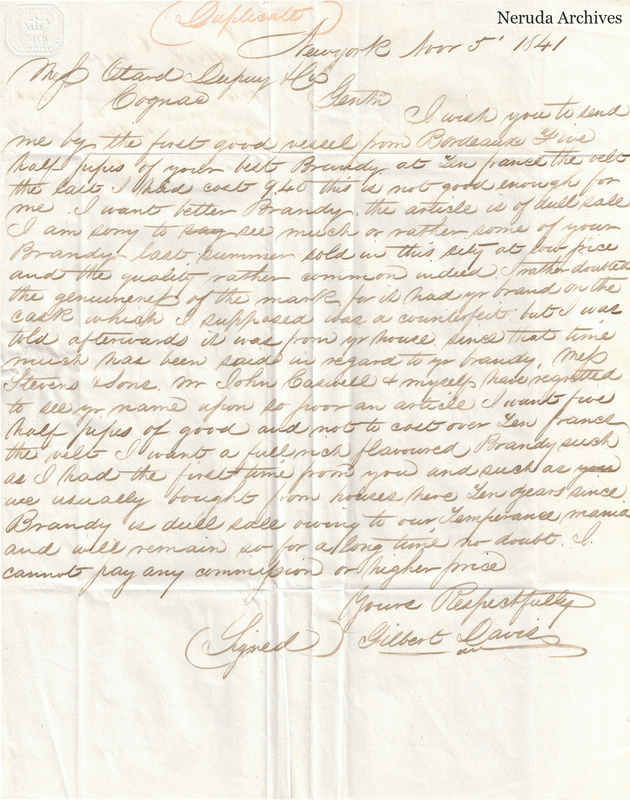 Neruda Archives
(Duplicate)
Newyork Novr 5' 1841
Mess Otard Dupuy & Co
Cognac Gentn
I wish you to send
me by the first good vessel from Bordeaux Five
half pipes of your best Brandy. at Ten francs the velt
the last I had cost 9.40 this is not good enough for
me I want better Brandy. the article is of dull sale
I am sorry to say see much or rather some of your
Brandy last summer sold in this city at low price
and the quality rather common indeed I rather doubted
the genuineness of the mark for it had yr brand on the
cask which I supposed was a counterfeit but I was
told afterwards it was from yr house. since that time
much has been said in regard to yr brandy. Mess
Stevens & Sons. Mr John Caswell & myself have regretted
to see yr name upon so poor an article I want five
half pipes of good and not to cost over Ten francs
the velt I want a full rich flavoured Brandy such
as I had the first time from you and such as you
we usually bought from houses here Ten years since
Brandy is dull sale owing to our Temperance mania
and will remain so for a long time no doubt. I
cannot pay any commission or higher price
Yours Respectfully
(Signed) Gilbert Davis